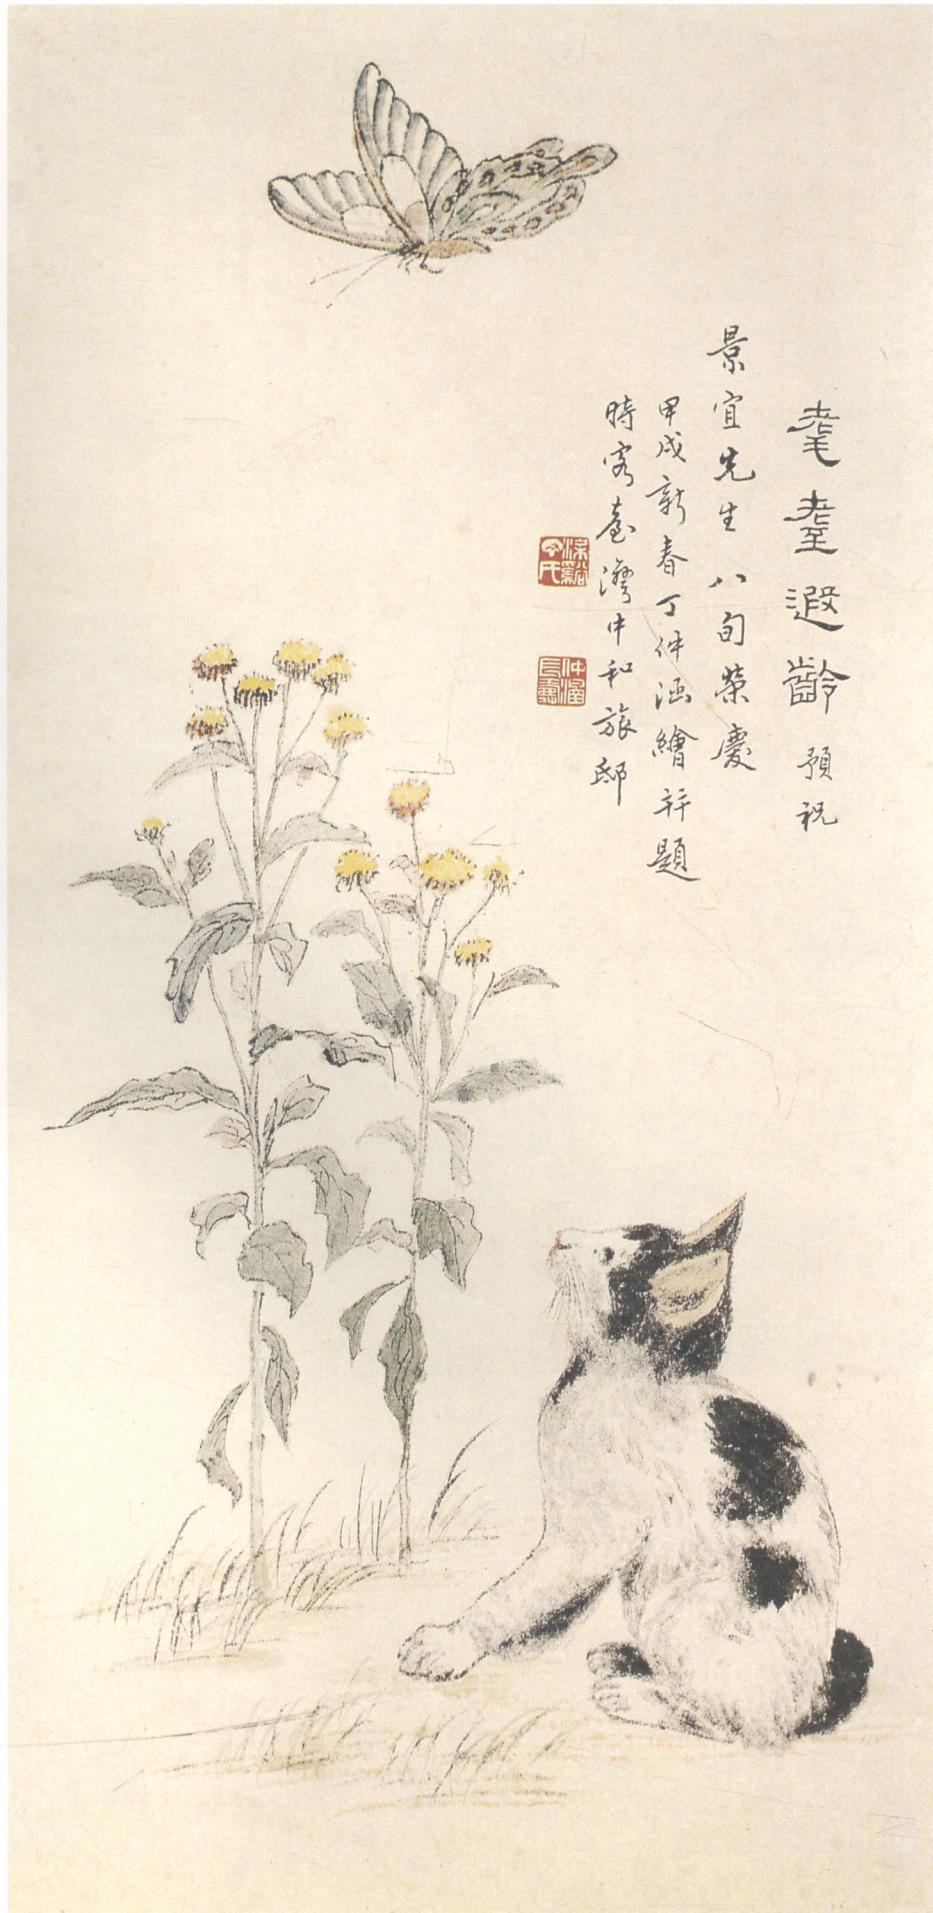 耄耋遐齡 預祝
景宜先生八旬榮慶
甲戌新春丁仲涵繪并題
時客臺灣中和旅邸